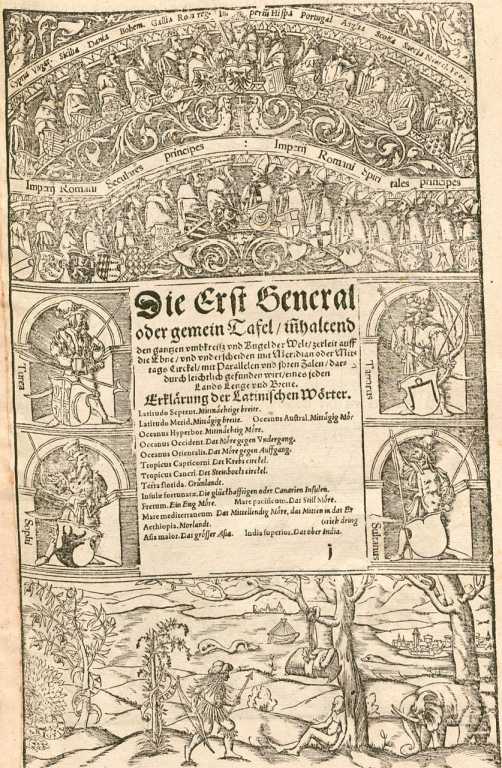 Cypria Vngar. Sicilia Dania Bohem. Gallia Rom reg. Hispa Portugal Anglia Scotia Suecia
Imperij Romani Seculares principes : Imperij Romani Spiri tales principes
Die Erst General
oder gemein Tafel / inhaltend
den gantzen vmbkreiß vnd Zugel der Welt / zerleit auff
die Ebne / vnd vnderscheiden mit Meridian oder Mit
tags Circkel / mit Parallelen vnd jhren Zalen / dar
durch leichtlich gefunden wirt / eines jeden
Lands Lenge vnd Breite.
Erklärung der Latinischen Wörter.
Latitudo Septent. Mitnächtige breite.
Latitudo Merid. Mittägig breite. Oceanus Austral. Mittägig Mör
Oceanus Hyperbor. Mitnächtig Möre.
Oceanus Occident. Das Möre gegen Vndergang.
Oceanus Orientalis. Das Möre gegen Auffgang.
Tropicus Capricorni Des Krebs circkel.
Tropicus Cancri. Des Steinbocks circkel.
Terra florida. Grünlandt.
Insulæ fortunatæ. Die glückhafftigen oder Canarien Insulen.
Fretum. Ein Eng Möre. Mare pacificum. Das Still Möre.
Mare mediterraneum Das Mittellendig Möre, das Mitten in das Er
trich dring
Aethiopia. Morlandt.
Asia maior. Das grösser Asia. India superior. Das ober India.
j
Turca
Tartarus
Sophi
Soltanus